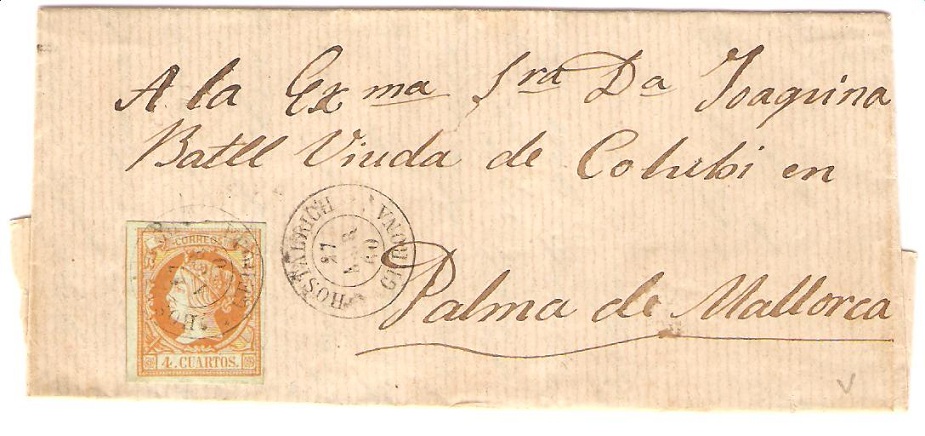 A la Exma Sra Da Joaquina
Batll Viuda de Colubi en
Palma de Mallorca
HOSTALRICH GERONA
27
ABR
60
CORREOS
4 CUARTOS.
V